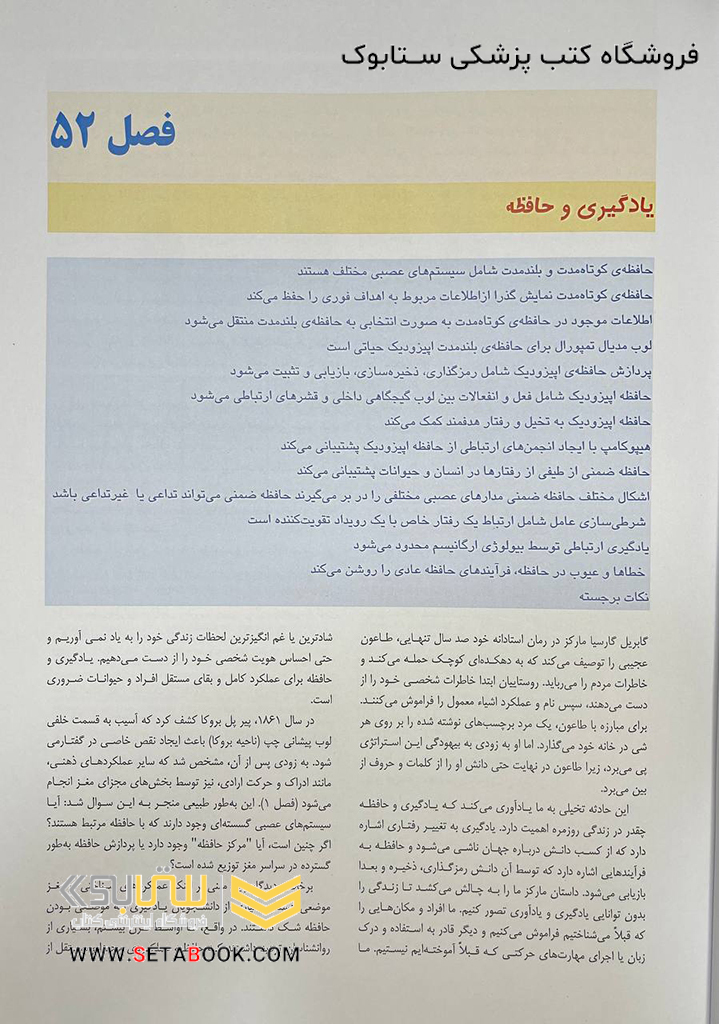 فروشگاه کتب پزشکی ستابوک
فصل ۵۲
یادگیری و حافظه
حافظه‌ی کوتاه‌مدت و بلندمدت شامل سیستم‌های عصبی مختلف هستند
حافظه‌ی کوتاه‌مدت نمایش گذرا ازاطلاعات مربوط به اهداف فوری را حفظ می‌کند
اطلاعات موجود در حافظه‌ی کوتاه‌مدت به صورت انتخابی به حافظه‌ی بلندمدت منتقل می‌شود
لوب مدیال تمپورال برای حافظه‌ی بلندمدت اپیزودیک حیاتی است
پردازش حافظه‌ی اپیزودیک شامل رمزگذاری، ذخیره‌سازی، بازیابی و تثبیت می‌شود
حافظه اپیزودیک شامل فعل و انفعالات بین لوب گیجگاهی داخلی و قشرهای ارتباطی می‌شود
حافظه اپیزودیک به تخیل و رفتار هدفمند کمک می‌کند
هیپوکامپ با ایجاد انجمن‌های ارتباطی از حافظه اپیزودیک پشتیبانی می‌کند
حافظه ضمنی از طیفی از رفتارها در انسان و حیوانات پشتیبانی می‌کند
اشکال مختلف حافظه ضمنی مدارهای عصبی مختلفی را در بر می‌گیرند حافظه ضمنی می‌تواند تداعی یا غیرتداعی باشد
شرطی‌سازی عامل شامل ارتباط یک رفتار خاص با یک رویداد تقویت‌کننده است
یادگیری ارتباطی توسط بیولوژی ارگانیسم محدود می‌شود
خطاها و عیوب در حافظه، فرآیندهای حافظه عادی را روشن می‌کند
نکات برجسته
گابریل گارسیا مارکز در رمان استادانه خود صد سال تنهایی، طاعون
عجیبی را توصیف می‌کند که به دهکده‌ای کوچک حمله می‌کند و
خاطرات مردم را می‌رباید. روستاییان ابتدا خاطرات شخصی خود را از
دست می‌دهند، سپس نام و عملکرد اشیاء معمول را فراموش می‌کنند.
برای مبارزه با طاعون، یک مرد برچسب‌های نوشته شده را بر روی هر
شی در خانه خود می‌گذارد. اما او به زودی به بیهودگی این استراتژی
پی می‌برد، زیرا طاعون در نهایت حتی دانش او را از کلمات و حروف از
بین می‌برد.
این حادثه تخیلی به ما یادآوری می‌کند که یادگیری و حافظه
چقدر در زندگی روزمره اهمیت دارد. یادگیری به تغییر رفتاری اشاره
دارد که از کسب دانش درباره جهان ناشی می‌شود و حافظه به
فرآیندهایی اشاره دارد که توسط آن دانش رمزگذاری، ذخیره و بعدا
بازیابی می‌شود. داستان مارکز ما را به چالش می‌کشد تا زندگی را
بدون توانایی یادگیری و یادآوری تصور کنیم. ما افراد و مکان‌هایی را
که قبلاً می‌شناختیم فراموش می‌کنیم و دیگر قادر به استفاده و درک
زبان یا اجرای مهارت‌های حرکتی که قبلاً آموخته‌ایم نیستیم. ما
شادترین یا غم انگیزترین لحظات زندگی خود را به یاد نمی آوریم و
حتی احساس هویت شخصی خود را از دست می‌دهیم. یادگیری و
حافظه برای عملکرد کامل و بقای مستقل افراد و حیوانات ضروری
است.
در سال ۱۸۶۱، پیر پل بروکا کشف کرد که آسیب به قسمت خلفی
لوب پیشانی چپ (ناحیه بروکا) باعث ایجاد نقص خاصی در گفتارمی
شود. به زودی پس از آن، مشخص شد که سایر عملکردهای ذهنی،
مانند ادراک و حرکت ارادی، نیز توسط بخش‌های مجزای مغز انجام
می‌شود (فصل ۱). این به‌طور طبیعی منجر به این سوال شد: آیا
سیستم‌های عصبی گسسته‌ای وجود دارند که با حافظه مرتبط هستند؟
اگر چنین است، آیا "مرکز حافظه" وجود دارد یا پردازش حافظه به‌طور
گسترده در سراسر مغز توزیع شده است؟
مغز
موضعی از یادگیری بودن
حافظه شک داشتند. در واقع، تا اواسط قرن بیستم، بسیاری از
روانشناسان مستقل از
ستابوک
فروشگاه اینترنتی کتاب
WWW.SETABOOK.COM